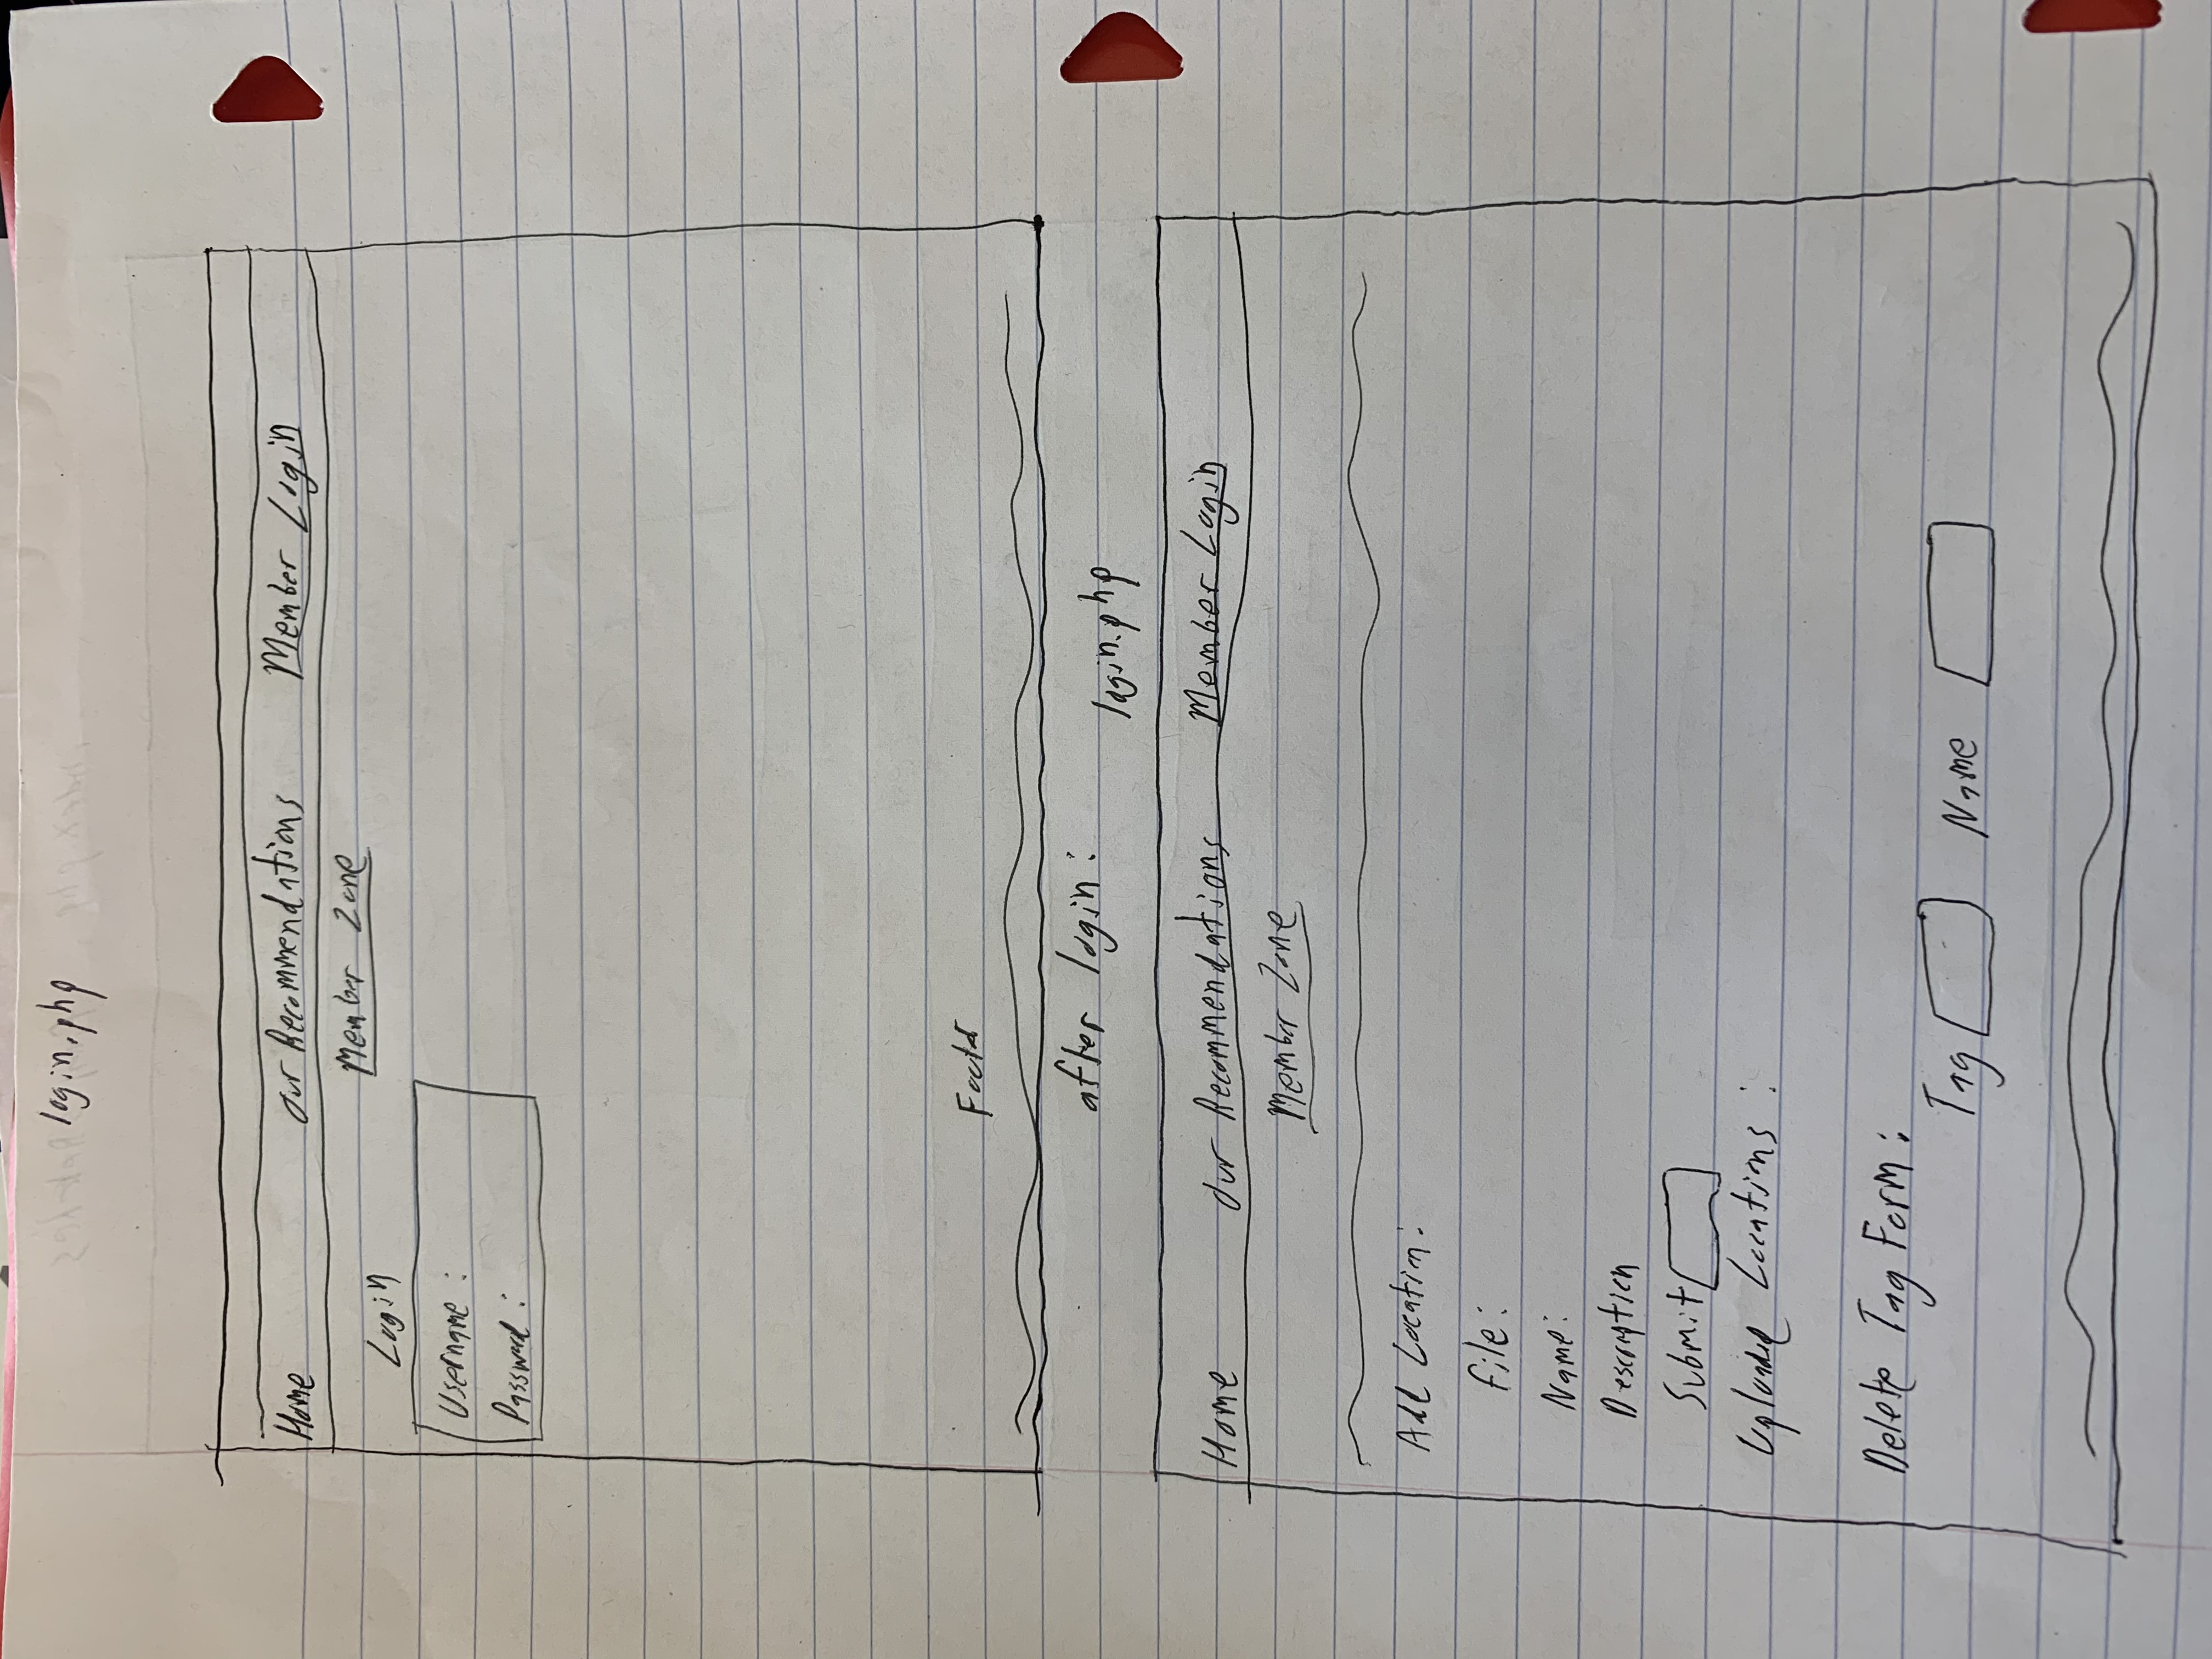 login.php
Home Our Recommendations Member Login
Member Zone
Login
Username :
Password :
Footer
after login :
login.php
Home Our Recommendations Member Login
Member Zone
Add Location :
File :
Name :
Description
Submit
Uploaded Locations :
Delete Tag Form :
Tag Name